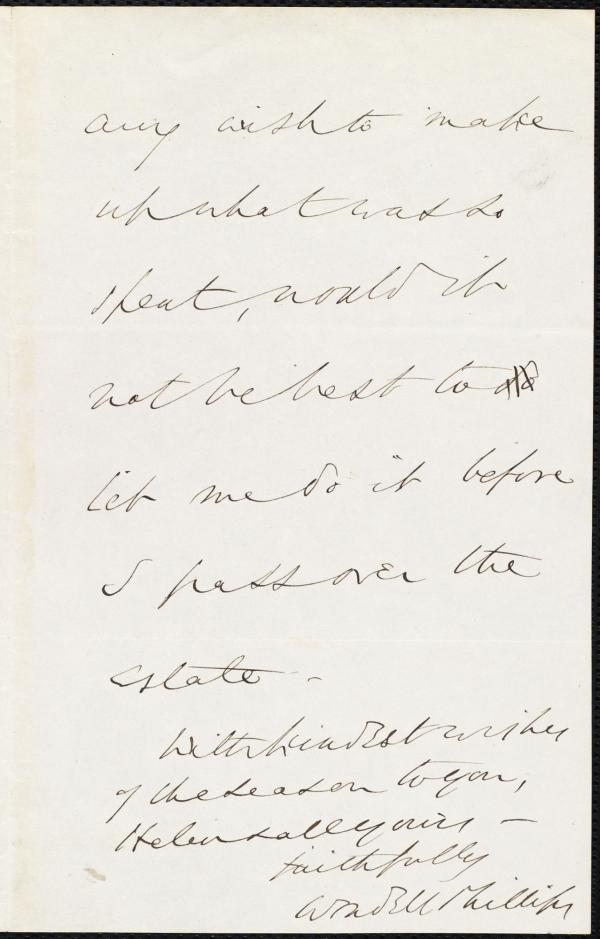 any wish to make
up what was so
spent, would it
not be best to
let me do it before
I pass over the
estate -
With kindest wishes
of the season to you,
Helen & all yours -
faithfully
Wendell Phillips